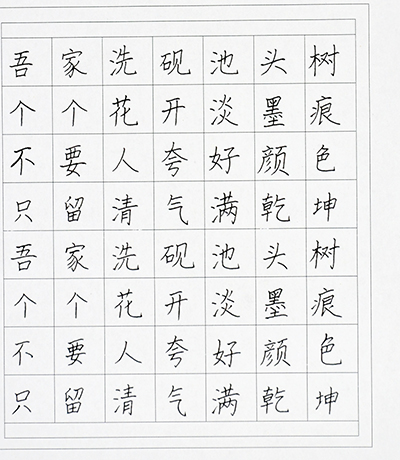 吾家洗砚池头树
个个花开淡墨痕
不要人夸好颜色
只留清气满乾坤
吾家洗砚池头树
个个花开淡墨痕
不要人夸好颜色
只留清气满乾坤